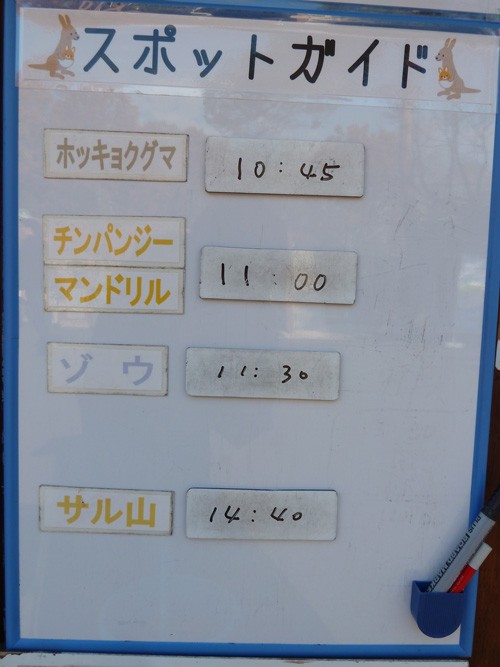 スポットガイド
ホッキョクグマ 10:45
チンパンジー
マンドリル 11:00
ゾウ 11:30
サル山 14:40